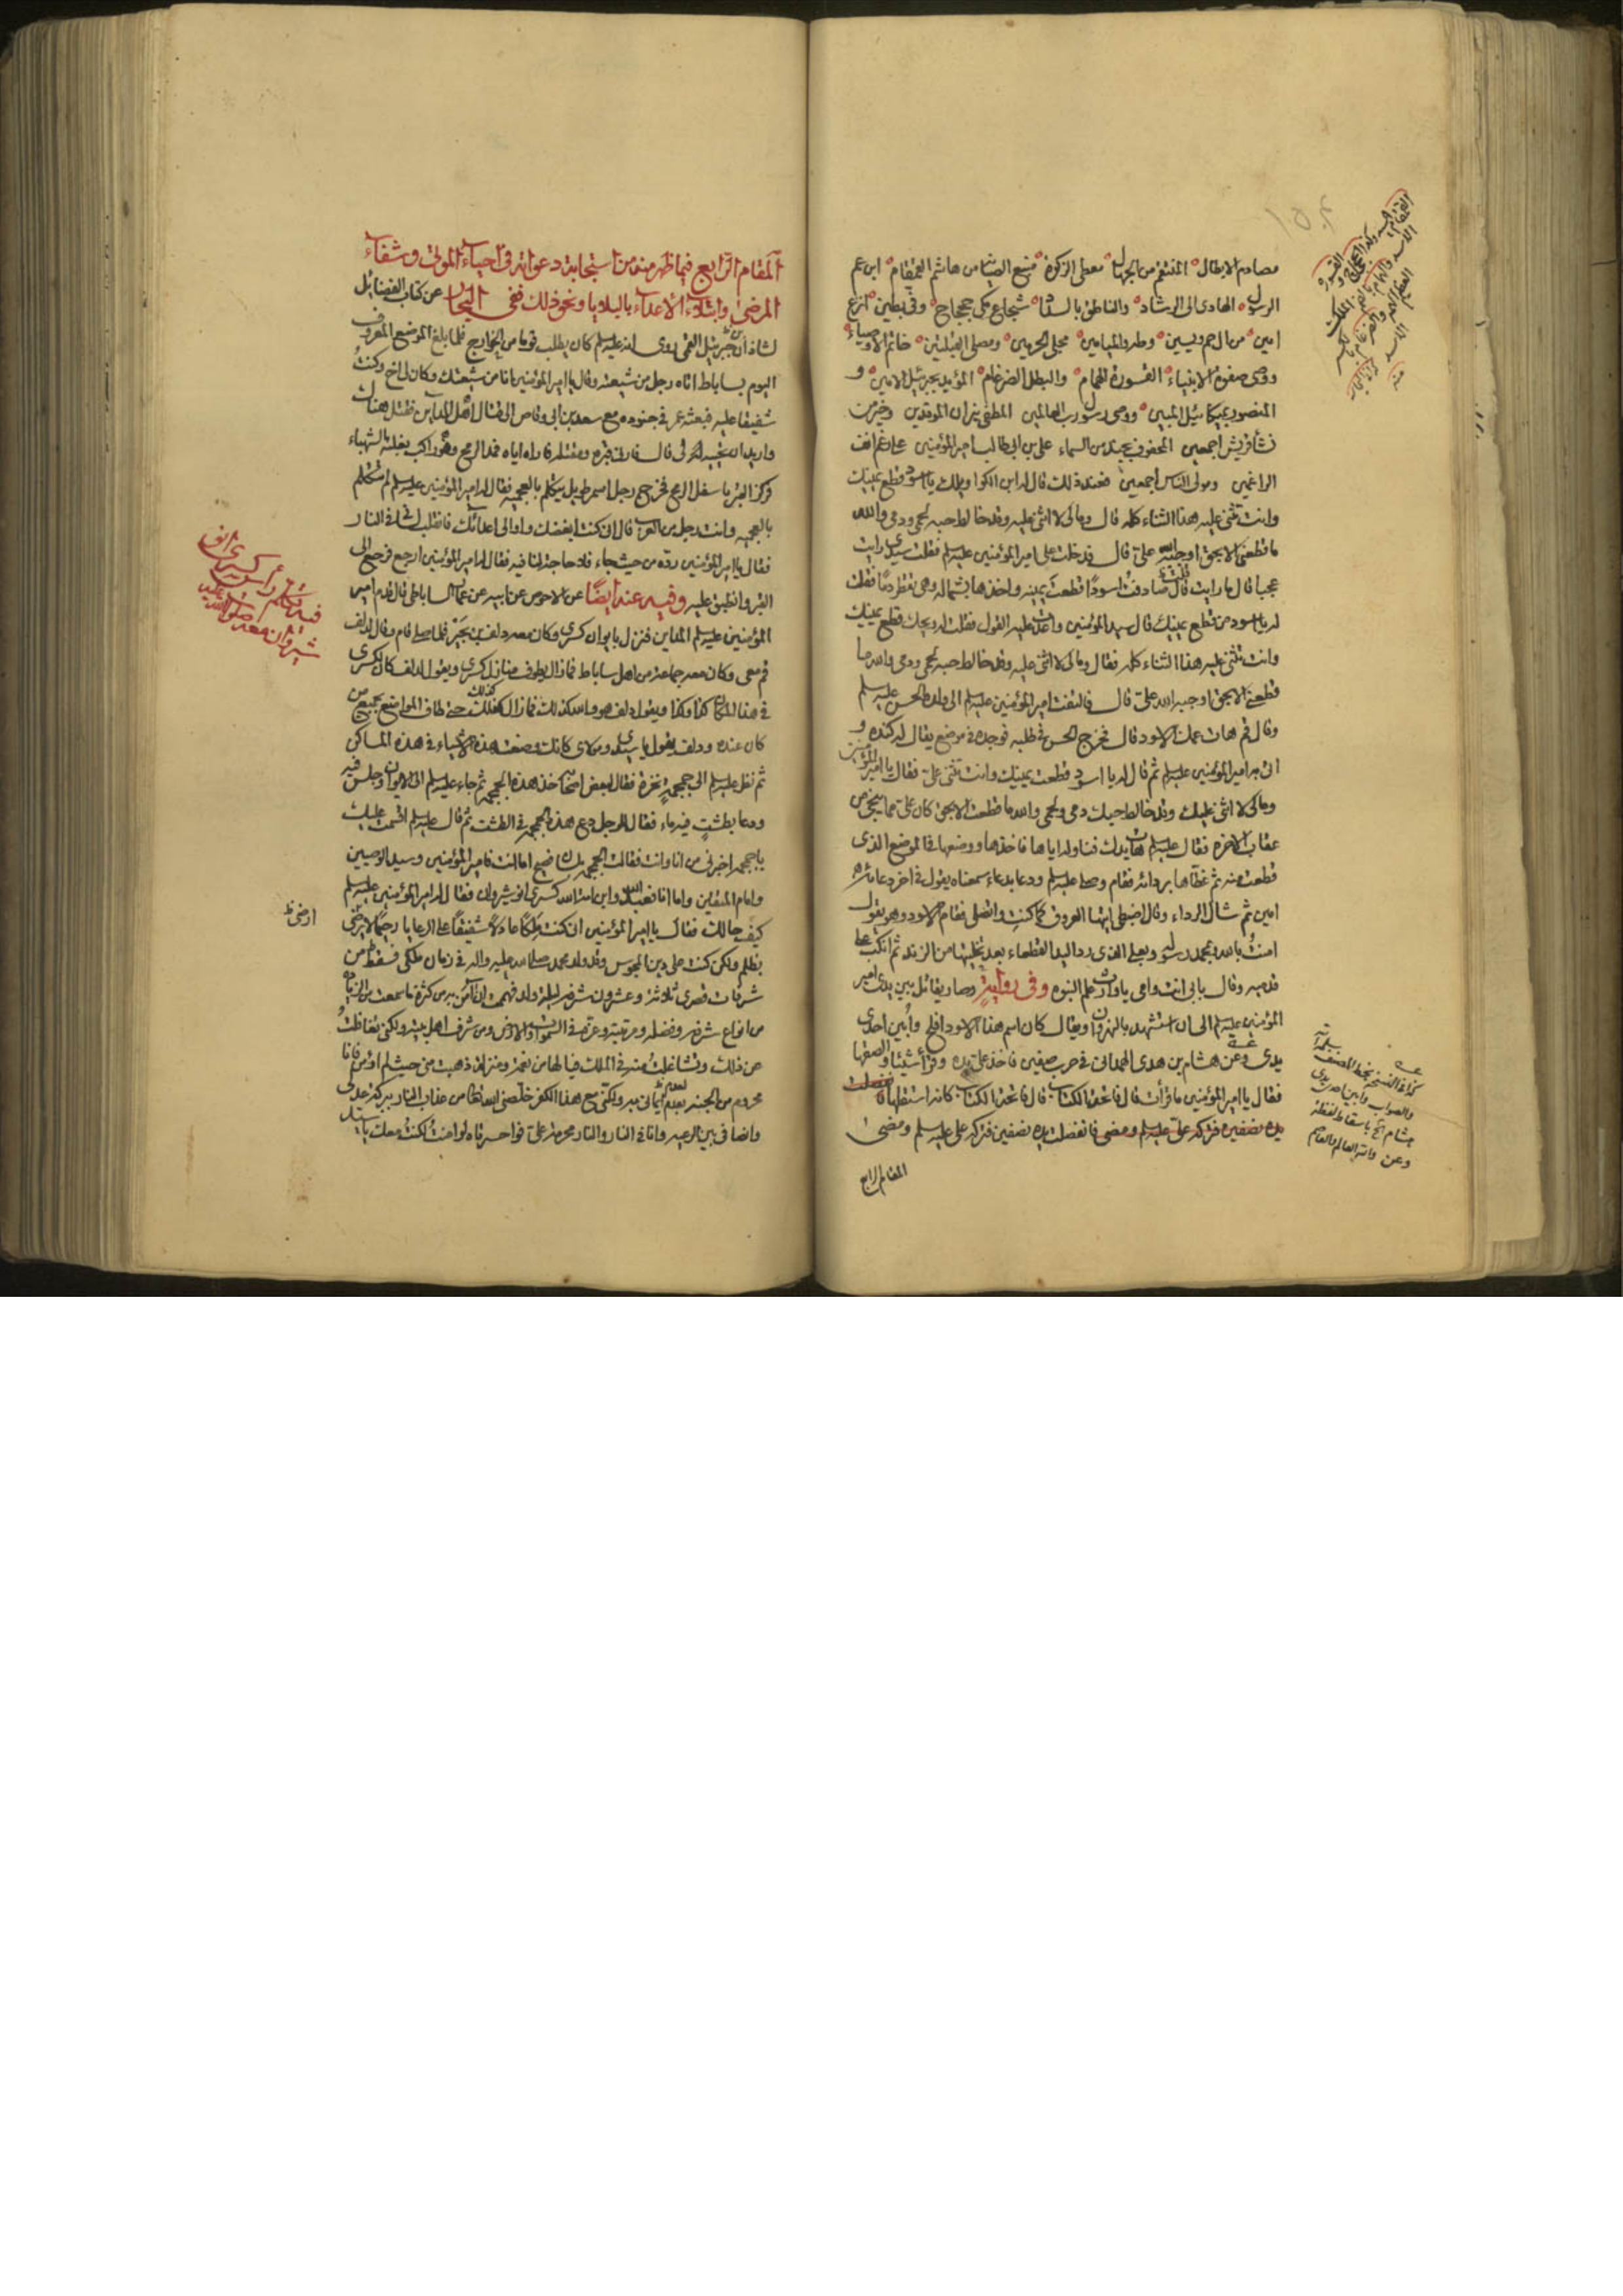 مصادم الابطال المنتقم من الجهال معطي الزكوة منيع الصيانة من هاشم القمقام ابن عم
الرسول الهادي الى الرشاد والناطق بالسداد شجاع مكي جحجاح وفي بطين انزع
امين من ال حم ويس وطه والميامين محلي الحرمين ومصلي القبلتين خاتم الاوصياء
ووصي صفوة الانبياء القسورة الهمام والبطل الضرغام المؤيد بجبرئيل الامين و
المنصور بميكائيل المبين ووصي رسول رب العالمين المطفي نيران الموقدين وخير من
نشأ من قريش اجمعين المحفوف بجند من السماء علي بن ابي طالب امير المؤمنين على رغم انف
الراغمين ومولى الناس اجمعين فعند ذلك قال له ابن الكوا ويلك يا اسود قطع يمينك
وانت تثني عليه هذا الثناء كله قال ومالي لا اثني عليه وقد خالط حبه لحمي ودمي والله
ما قطعني الا بحق اوجبه الله علي قال فدخلت على امير المؤمنين عليه السلم فقلت سيدي رايت
عجبا قال ما رايت قال صادفت اسودا قطعت يمينه واخذها بشماله وهي تقطر دما فقلت
له يا اسود من قطع يمينك قال سيد المؤمنين واعدت عليه القول فقلت له ويحك قطع يمينك
وانت تثني عليه هذا الثناء كله فقال ومالي لا اثني عليه وقد خالط حبه لحمي ودمي والله ما
قطعني الا بحق اوجبه الله علي قال فالتفت امير المؤمنين عليه السلم الى ولده الحسن عليه السلم
وقال قم هات عمك الاسود قال فخرج الحسن في طلبه فوجده في موضع يقال له كنده و
اتى به امير المؤمنين عليه السلم ثم قال له يا اسود قطعت يمينك وانت تثني علي فقال يا امير المؤمنين
ومالي لا اثني عليك وقد خالط حبك دمي ولحمي والله ما قطعت الا بحق كان علي مما ينجي من
عقاب الاخرة فقال عليه السلم هات يدك فناوله اياها فاخذها ووضعها في الموضع الذي
قطعت منه ثم غطاها بردائه فقام وصلى عليه السلم ودعا بدعاء سمعناه يقول في اخر دعائه
امين ثم شال الرداء وقال اضبطي ايتها العروق كما كنت واتصلي فقام الاسود وهو يقول
امنت بالله وبمحمد رسوله وبعلي الذي رد اليد القطعاء بعد تخليتها من الزند ثم انكب على
قدميه وقال بابي انت وامي يا وارث علم النبوة وفي رواية وصار يقاتل بين يدي امير
المؤمنين عليه السلم الى ان استشهد بالنهروان ويقال كان اسم هذا الاسود افلح وأبين احدى
يدي وعن هشام بن عدي الهمداني في حرب صفين فاخذ علي يده وقرأ شيئا والصقها
فقال يا امير المؤمنين ما قرأت قال فاتحة الكتاب قال فاتحة الكتاب كانه استقلها فانفصلت
يده نصفين فتركه علي عليه السلم ومضى فانفصلت يده نصفين فتركه علي عليه السلم ومضى
المقام الرابع
كذا في النسخ بخط المصنف
والصواب وابين احدى يدي
هشام الخ باسقاط لفظة
وعن والله العالم
المقام الرابع فيما ظهر منه من استجابة دعواته في احياء الموتى وشفاء
المرضى وابتلاء الاعداء بالبلايا ونحو ذلك ففي البحار عن كتاب الفضائل
لشاذان بن جبرئيل القمي روي انه عليه السلم كان يطلب قوما من الخوارج فلما بلغ الموضع المعروف
اليوم بساباط اتاه رجل من شيعته وقال يا امير المؤمنين انا من شيعتك وكان لي اخ وكنت
شفيقا عليه فبعثه عمر في جنوده مع سعد بن ابي وقاص الى قتال اهل المداين فقتل هناك
واريد ان تحييه لي قال فارني قبره ومقتله فاراه اياه فمد الرمح وهو راكب بغلته الشهباء
فركز القبر باسفل الرمح فخرج رجل اسمر طويل يتكلم بالعجمية فقال له امير المؤمنين عليه السلم لم تتكلم
بالعجمية وانت رجل من العرب قال اني كنت ابغضك واوالي اعدائك فانقلب لساني في النار
فقال يا امير المؤمنين رده من حيث جاء فلا حاجة لنا فيه فقال له امير المؤمنين ارجع فرجع الى
القبر وانطبق عليه وفيه عنه ايضا عن الاحوص عن ابيه عن عمار الساباطي قال قدم امير
المؤمنين عليه السلم المداين فنزل بايوان كسرى وكان معه دلف بن بحير فلما صلى قام وقال لدلف
قم معي وكان معه جماعة من اهل ساباط فما زال يطوف منازل كسرى ويقول لدلف كان لكسرى
في هذا المكان كذا وكذا ويقول دلف هو والله كذلك فما زال كذلك حتى طاف المواضع بجميع من
كان عنده ودلف يقول يا سيدي ومولاي كانك وضعت هذه الاشياء في هذه المساكن
ثم نظر عليه السلم الى جمجمة نخرة فقال لبعض اصحابه خذ هذه الجمجمة ثم جاء عليه السلم الى الايوان وجلس فيه
ودعا بطشت فيه ماء فقال للرجل دع هذه الجمجمة في الطشت ثم قال عليه السلم اقسمت عليك
يا جمجمة اخبرني من انا وانت فقالت الجمجمة بلسان فصيح اما انت فامير المؤمنين وسيد الوصيين
وامام المتقين واما انا فعبد الله وابن امة الله كسرى انوشيروان فقال له امير المؤمنين عليه السلم
كيف حالك فقال يا امير المؤمنين اني كنت ملكا عادلا شفيقا على الرعايا رحيما لا يرضى
بظلم ولكن كنت على دين المجوس وقد ولد محمد صلى الله عليه واله في زمان ملكي فسقط من
شرفات قصري ثلاثة وعشرون شرفة ليلة ولد فهممت ان آمن به من كثرة ما سمعت من الزيادة
من انواع شرفه وفضله ومرتبته وعزه في السموات والارض ومن شرف اهل بيته ولكني تغافلت
عن ذلك وتشاغلت منه في الملك فيا لها من نعمة ومنزلة ذهبت مني حيث لم اؤمن فانا
محروم من الجنة بعدم ايماني به ولكني مع هذا الكفر خلصني الله تعالى من عذاب النار ببركة عدلي
وانصافي بين الرعية وانا في النار والنار محرمة علي فوا حسرتاه لو امنت لكنت معك يا سيد
فيه تكلم رأس كسرى انو
شيروان معه صلوات الله عليه
ارضى